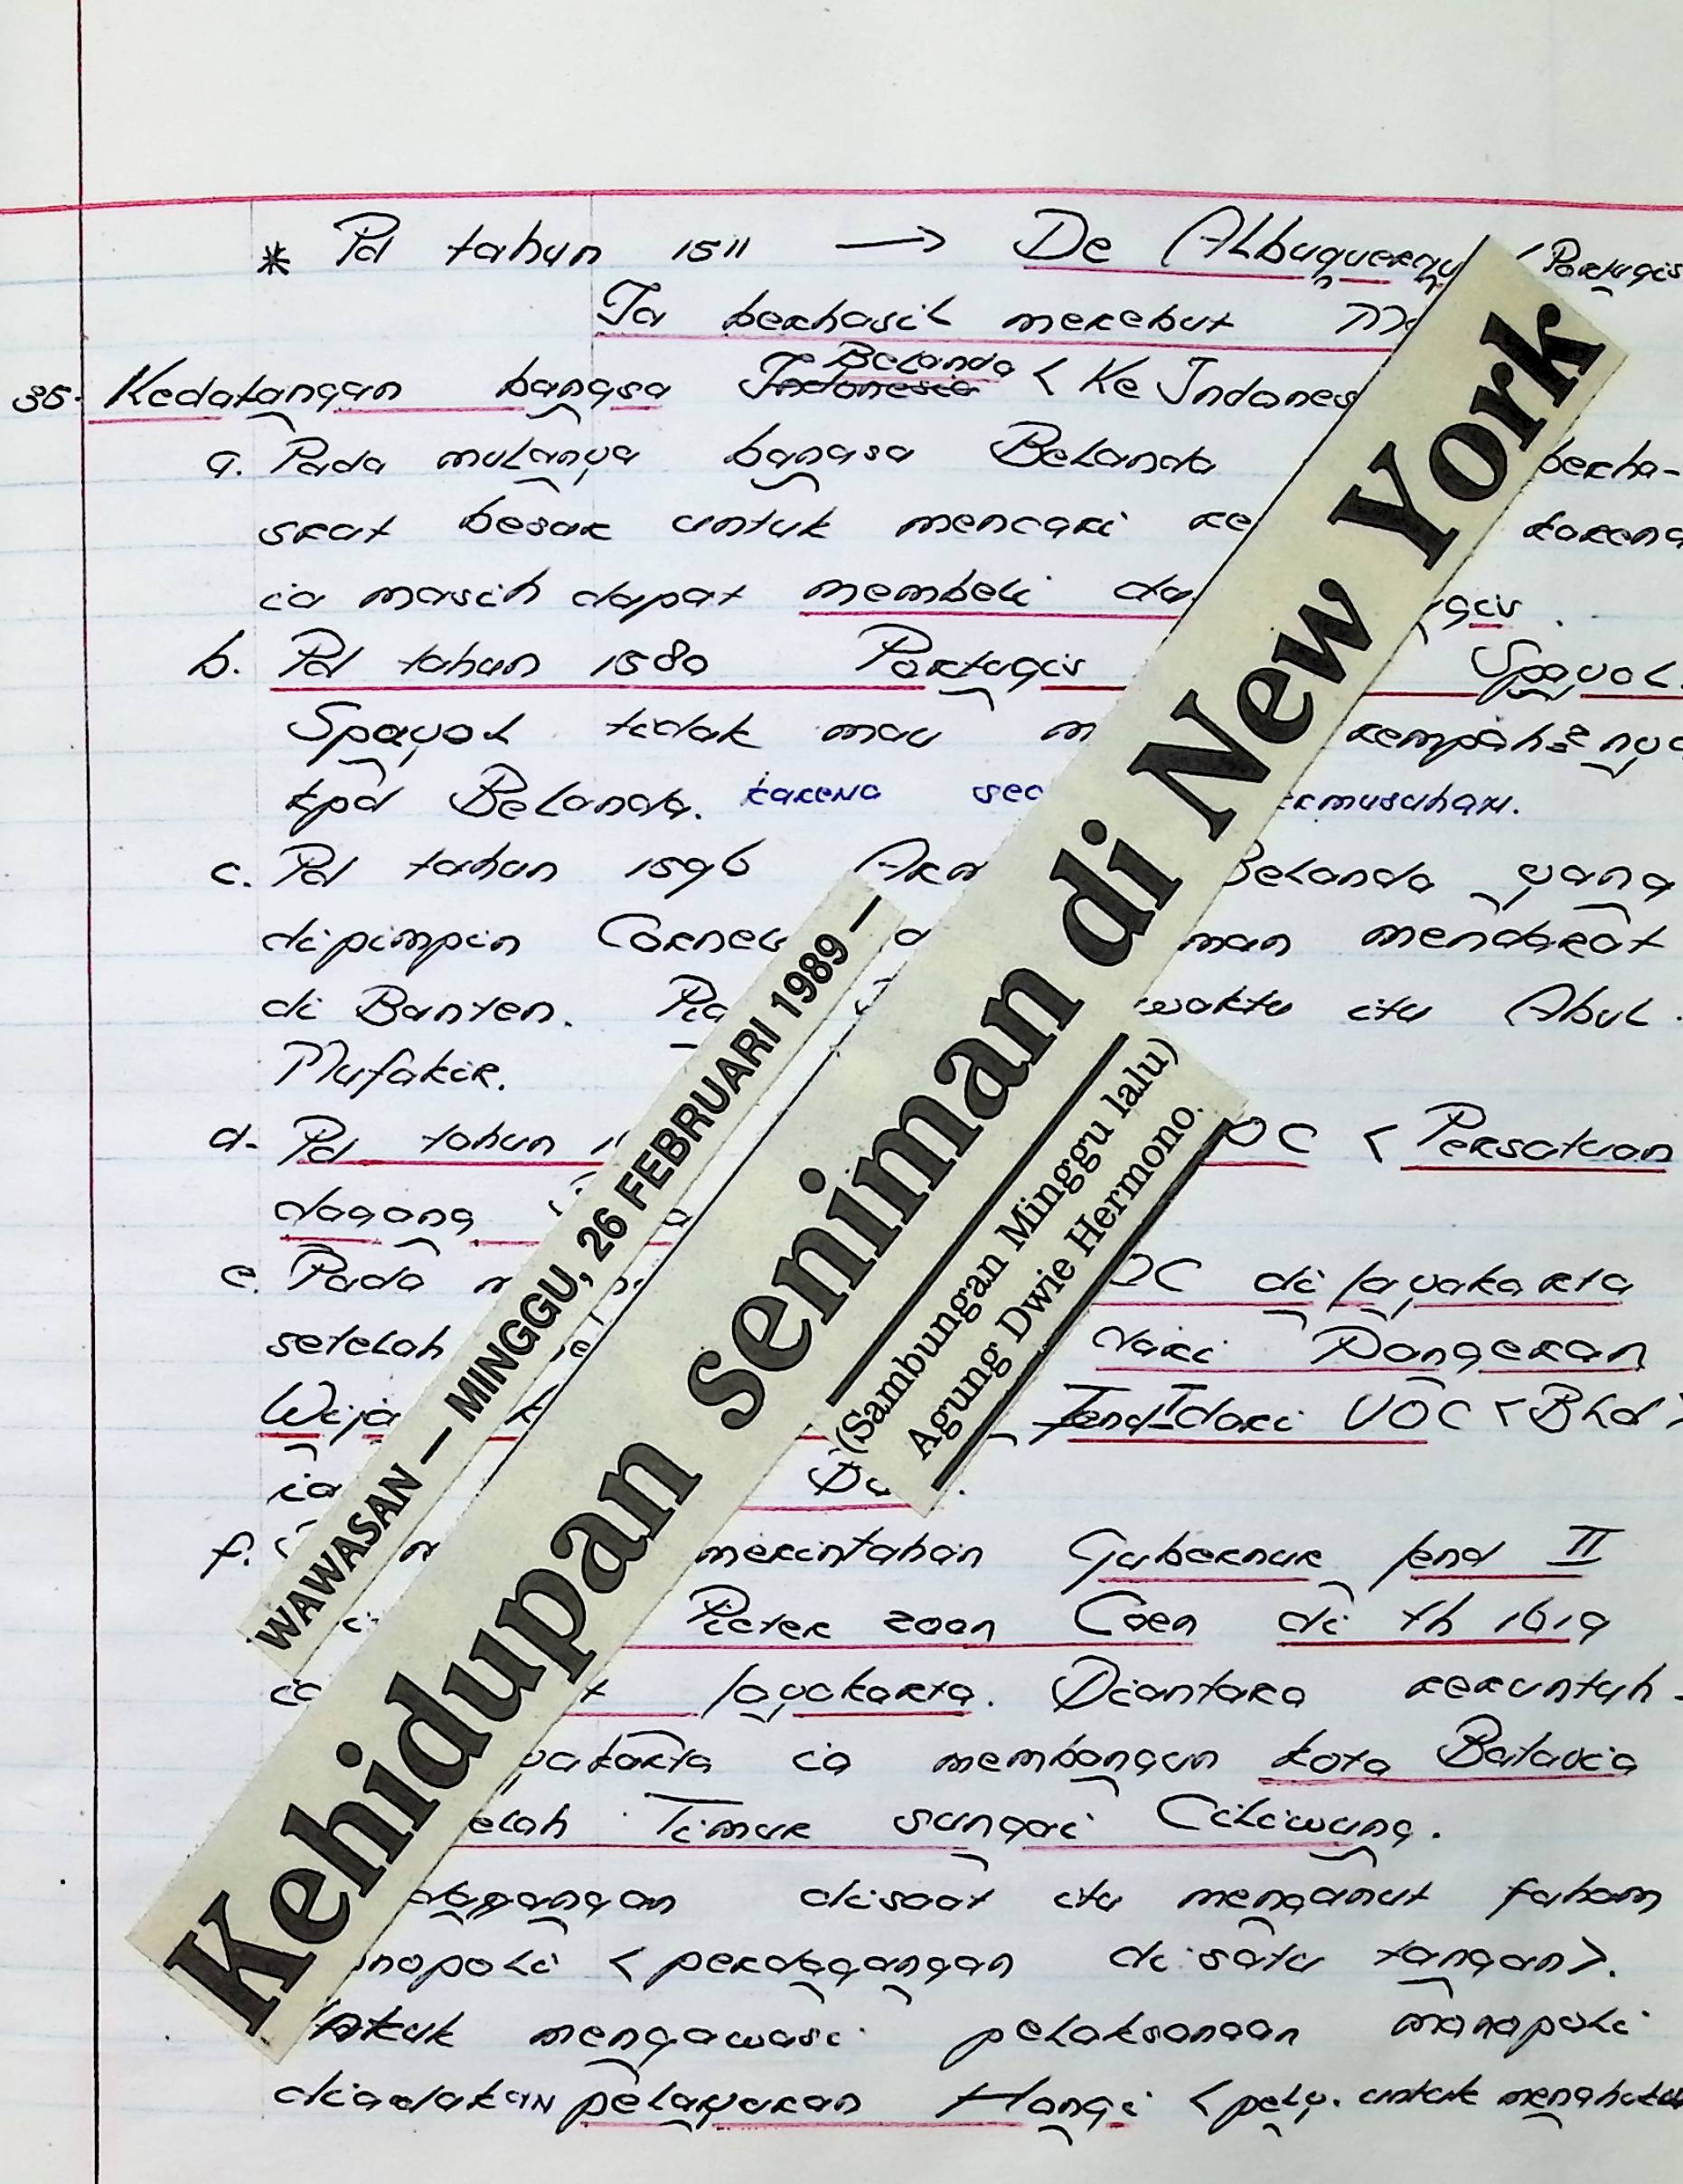 * Pd tahun 1511 → De Albuquerqu < Portugis
Ia berhasil merebut
35. Kedatangan bangsa Indonesia Belanda < Ke Indones
a. Pada mulanya bangsa Belanda berha-
srat besar untuk mencari karena
ia masih dapat membeli gis.
b. Pd tahun 1580 Portugis Spayol.
Spayol tidak mau rempah=2 nya
kpd Belanda. karena ermusuhan.
c. Pd tahun 1596 Belanda yang
dipimpin man mendarat
di Banten. waktu itu Abul.
Mufakir.
d. Pd tahun OC < Persatuan
dagang
e. Pada OC di Jayakarta
setelah dari Pangeran
Wija Jend I dari VOC < Bld >
ia
f. merintahan Gubernur Jend II
Pieter zoon Coen di th 1619
Jayakarta. Diantara reruntuh-
yakarta ia membangun kota Batavia
elah Timur sungai Ciliwung.
agangan disaat itu menganut faham
nopoli < perdagangan di satu tangan >.
ntuk mengawasi pelaksanaan monopoli
diadakan pelayaran Hongi < pely. untuk
WAWASAN — MINGGU, 26 FEBRUARI 1989 —
Kehidupan seniman di New York
(Sambungan Minggu lalu)
Agung Dwie Hermono.